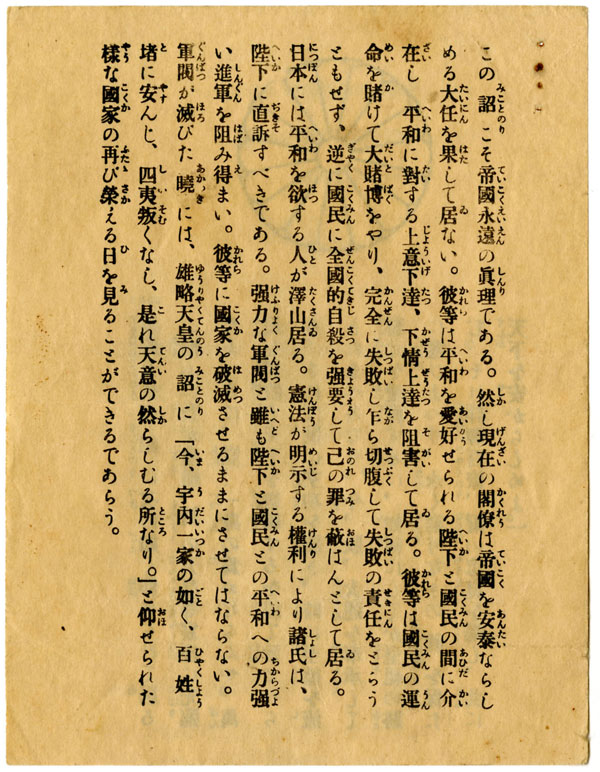 この詔こそ帝國永遠の眞理である。然し現在の閣僚は帝國を安泰ならし
める大任を果して居ない。彼等は平和を愛好せられる陛下と國民の間に介
在し　平和に對する上意下達、下情上達を阻害して居る。彼等は國民の運
命を賭けて大賭博をやり、完全に失敗し乍ら切腹して失敗の責任をとらう
ともせず、逆に國民に全國的自殺を强要して己の罪を蔽はんとして居る。
日本には平和を欲する人が澤山居る。憲法が明示する權利により諸氏は、
陛下に直訴すべきである。强力な軍閥と雖も陛下と國民との平和への力强
い進軍を阻み得まい。彼等に國家を破滅させるままにさせてはならない。
軍閥が滅びた曉には、雄略天皇の詔に「今、宇内一家の如く、百姓
堵に安んじ、四夷叛くなし、是れ天意の然らしむる所なり。」と仰せられた
樣な國家の再び榮える日を見ることができるであらう。